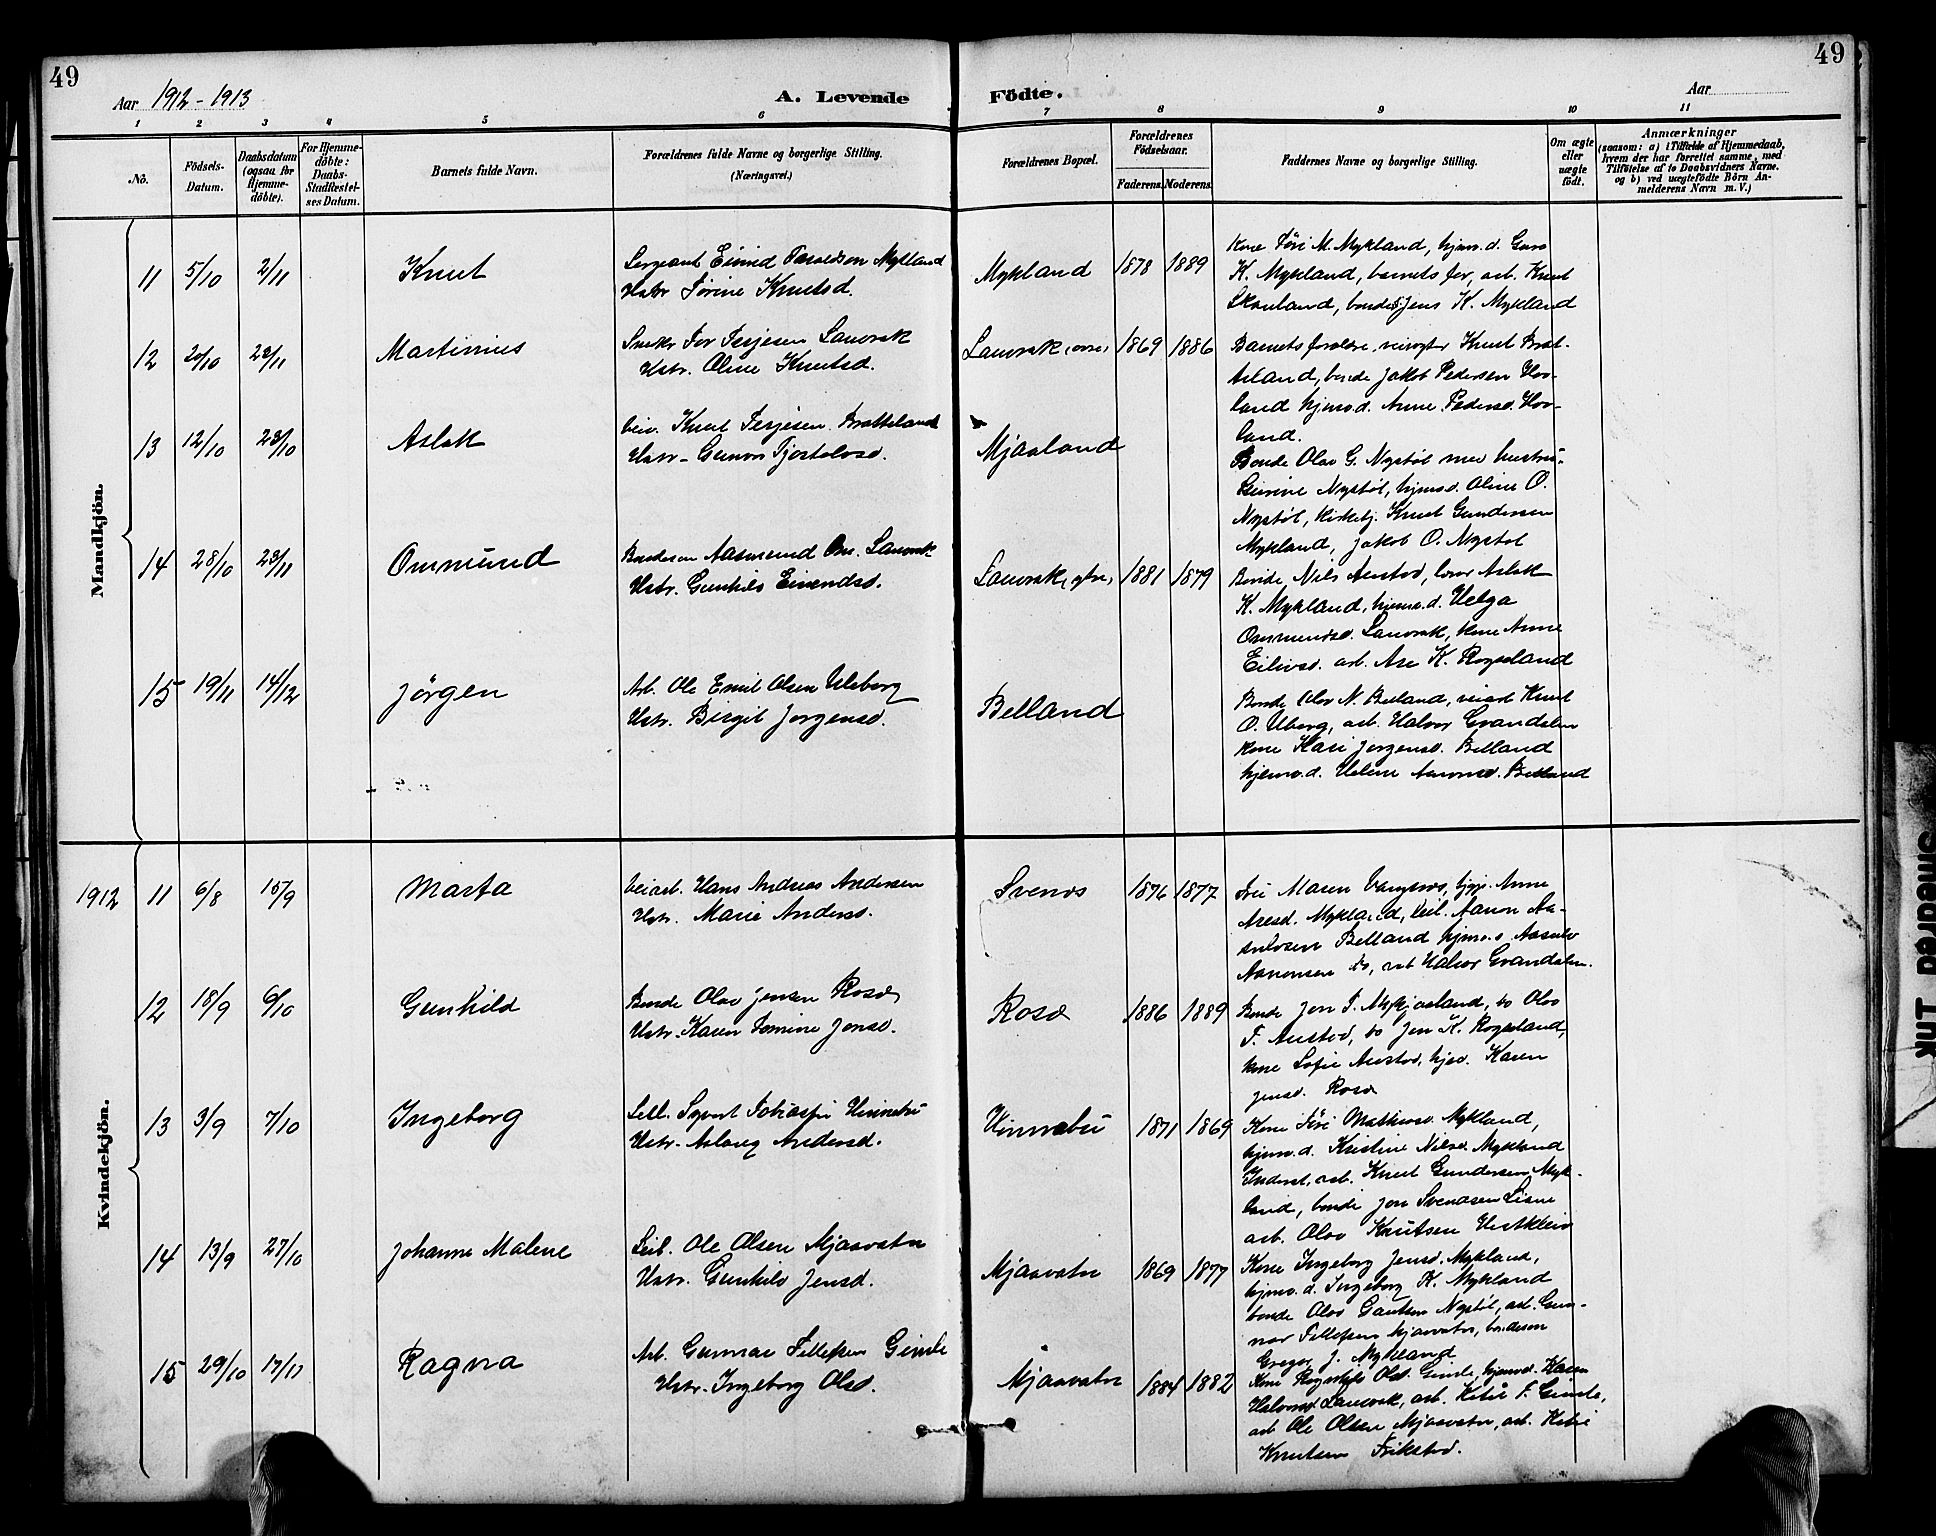 49
49
Aar 1912-1913
A. Levende Födte.
Aar
1 2 3 4 5 6 7 8 9 10 11
No.
Födsels-Datum.
Daabsdatum (ogsaa for Hjemme-döbte).
For Hjemme-döbte: Daabs-Stadfæstel-ses Datum.
Barnets fulde Navn.
Forældrenes fulde Navne og borgerlige Stilling. (Næringsvei.)
Forældrenes Bopæl.
Forældrenes Födselsaar.
Faderens. Moderens.
Faddernes Navne og borgerlige Stilling.
Om ægte eller uægte födt.
Anmærkninger
(saasom: a) i Tilfælde af Hjemmedaab,
hvem der har forrettet samme, med
Tilföielse af to Daabsvidners Navne.
og b) ved uægtefödte Börn An-
melderens Navn m. V.)
Mandkjön.
11 5/10 2/11 Knut
Sergeant Eivind Mykland
Ustr Sørine Knutsd.
Mykland 1878 1889
Kone Siri M. Mykland, hjmv.d.
K. Mykland, barnets far, arb. Knut
bonde Jens K. Mykland
12 20/10 23/11 Martinius
Tor Terjesen Lauvrak
Ustr. Oline Knutsd.
Lauvrak 1869 1886
Barnets forældre, Knut Brat-
bonde Jakob Pedersen Hov-
land hjmv.d. Anne Pedersd. Hov-
land.
13 12/10 23/10 Aslak
Knut Terjesen Bratteland
Ustr. Gunvor Tjostolvsd.
Mjaaland
Bonde Olav G. Nystøl med hustru
Nystøl, hjmv.d. Oline O.
Nystøl, kirketj. Knut Gundersen
Mykland, Jakob O. Nystøl
14 28/10 23/11 Ommund
Bondesøn Aasmund Om. Lauvrak
Ustr. Gunhild Eivindsd.
Lauvrak 1881 1879
Bonde Nils Austad, lærer Aslak
K. Mykland, hjemv.d. Helga
Ommundsd. Lauvrak, kone Anne
Eilivsd. arb. K. Rogeland
15 19/11 14/12 Jörgen
Arb. Ole Emil Olsen Uleberg
Ustr. Birgit Jorgensd.
Belland
Bonde Olav N. Belland, Knut
O. Uleberg, arb. Halvor Grandalen
kone Kari Jorgensd. Belland
hjemv.d. Helene Aaronsd. Belland
Kvindekjön.
1912 11 6/8 15/9 Marta
Veiarb. Hans Andreas Andersen
Ustr. Marie Andersd.
Svenes 1876 1877
Maren Anne
Mykland, Aaron Aa-
Belland hjmv.
Aaronsen do, arb Halvor Grandalen.
12 18/9 6/10 Gunhild
Bonde Olav Jensen
Ustr. Karen Tomine Jensd.
1886 1889
Bonde Jon T. do Olav
T. Austad, do Jon K. Rogeland,
kone Sofie Austad, Karen
Jensd.
13 3/9 7/10 Ingeborg
Hinnebu
Ustr. Aslaug Andersd.
Hinnebu 1871 1869
Kone Siri Mykland,
hjmv.d. Kristine Nilsd. Mykland
arb. Knut Gundersen Myk-
land, bonde Jon
arb. Olav Knutsen
14 13/9 27/10 Johanne Malene
Ole Olsen Mjaavatn
Ustr. Gunhild Jensd.
Mjaavatn 1869 1877
Kone Ingeborg Jensd. Mykland,
hjmv.d. Ingeborg K. Mykland
bonde Olav Nystøl, arb. Gun-
nar Tellefsen Mjaavatn, bondesøn
Gregor J. Mykland
15 29/10 17/11 Ragna
Arb. Gunnar Tellefsen Gimle
Ustr. Ingeborg Olsd.
Mjaavatn 1884 1882
Kone Olsd. Gimle, hjemvd. Karen
Lauvrak, arb. T. Gimle,
arb Ole Olsen Mjaavatn, arb.
Knutsen
Smeared Ink